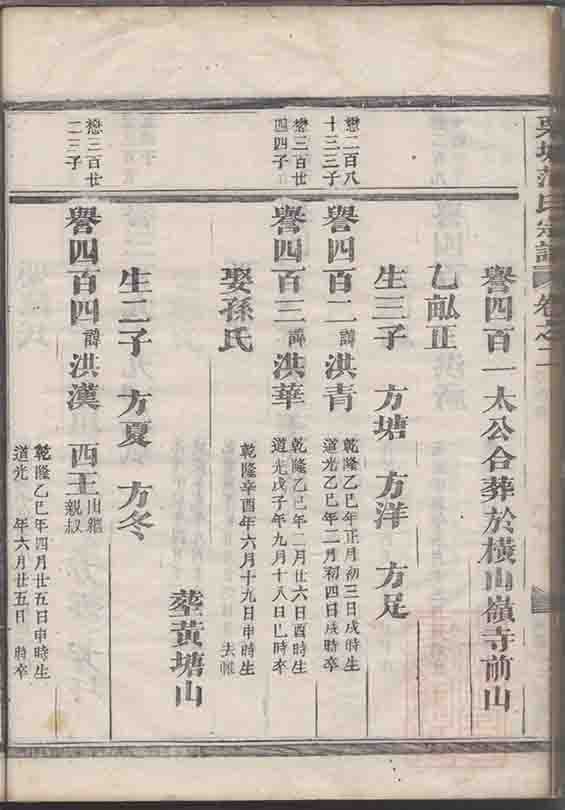 栗塘范氏宗譜 卷之二
譽四百一太公合葬於橫山嶺寺前山
乙畝正
生三子 方塘 方洋 方足
懋二百八十三三子
譽四百二 諱 洪青
乾隆乙巳年正月初三日戌時生
道光乙巳年二月初四日戌時卒
懋三百廿四四子
譽四百三 諱 洪華
乾隆乙巳年二月廿六日酉時生
道光戊子年九月十八日巳時卒
娶孫氏
乾隆辛酉年六月十九日申時生
去帷
葬黃塘山
生二子 方夏 方冬
懋三百廿二三子
譽四百四 諱 洪漢 西王 出繼親叔
乾隆乙巳年四月廿五日申時生
道光 年六月廿五日 時卒